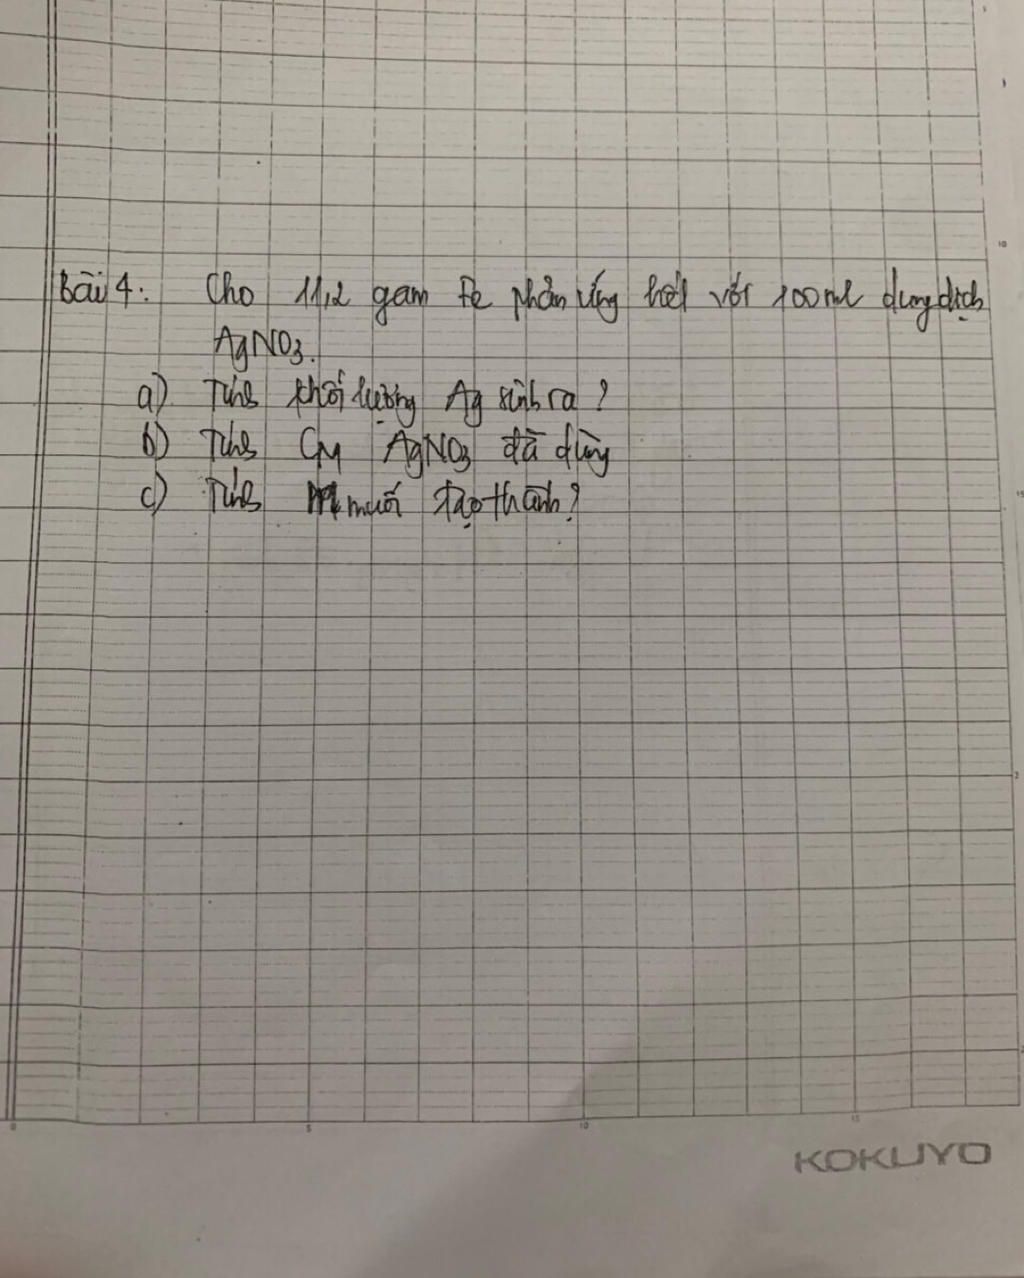 Bài 4: Cho 11,2 gam Fe phản ứng hết với 100ml dung dịch
AgNO3.
a) Tính khối lượng Ag sinh ra?
b) Tính CM AgNO3 đã dùng
c) Tính m muối tạo thành?
10
15
2
0 5 10 15
KOKUYO